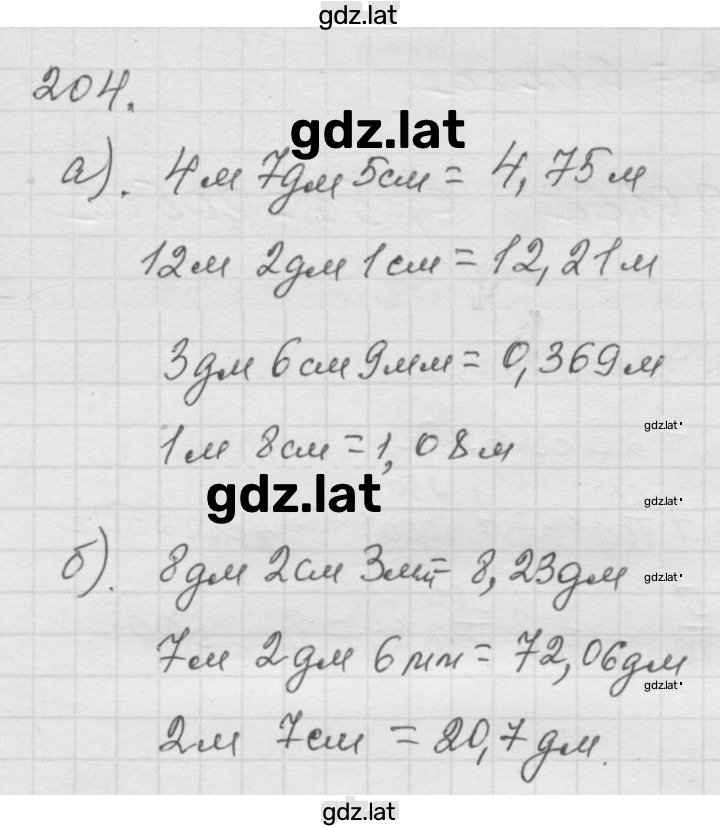 gdz.lat
204.
gdz.lat
а). 4м 7дм 5см = 4,75м
12м 2дм 1см = 12,21м
3дм 6см 9мм = 0,369м
1м 8см = 1,08м
gdz.lat
gdz.lat
gdz.lat
б). 8дм 2см 3мм = 8,23дм
gdz.lat
7м 2дм 6мм = 72,06дм
gdz.lat
2м 7см = 20,7дм.
gdz.lat